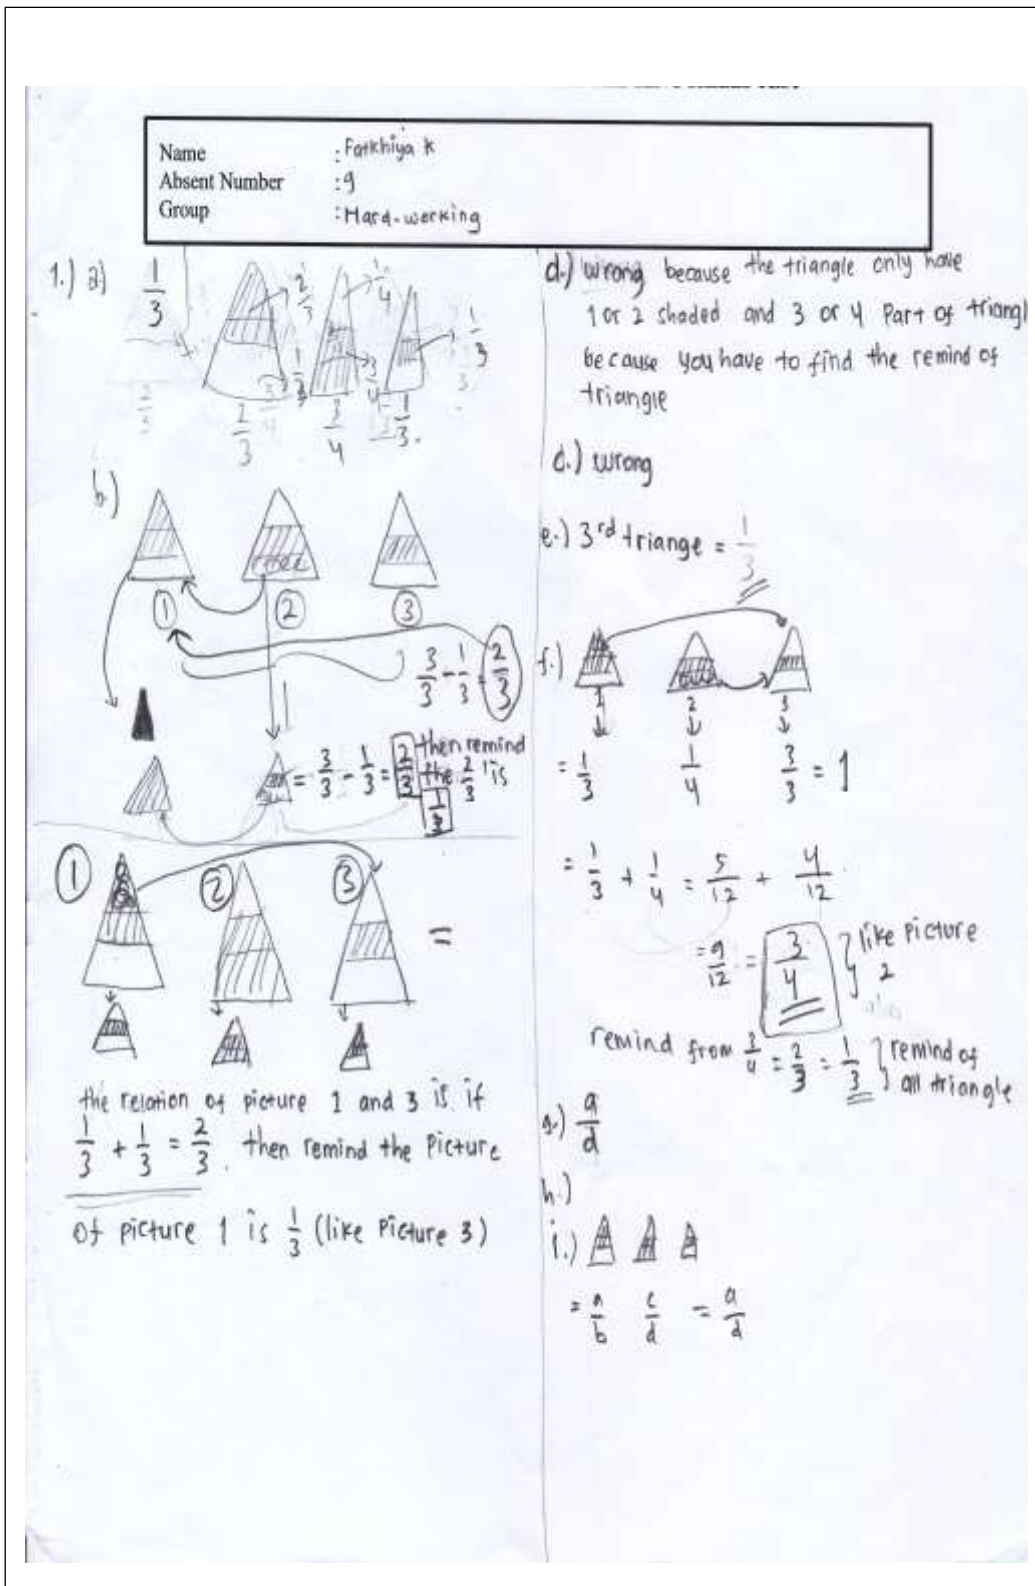 Name : Fatkhiya K
Absent Number : 9
Group : Hard-working
1.) a) 1/3
2/3 1/3 1/4 3/4 1/3
2/3 3/4 1/3
b)
1 2 3
3/3 - 1/3 = 2/3
= 3/3 - 1/3 = 2/3 then remind
the 2/3 is
1/3
1 2 3 =
the relation of picture 1 and 3 is if
1/3 + 1/3 = 2/3. then remind the picture
of picture 1 is 1/3 (like picture 3)
d.) wrong because the triangle only have
1 or 2 shaded and 3 or 4 Part of triangl
because you have to find the remind of
triangle
c.) wrong
e.) 3rd triange = 1/3
f.)
1 2 3
= 1/3 1/4 3/3 = 1
= 1/3 + 1/4 = 5/12 + 4/12
= 9/12 = 3/4 } like picture
2
remind from 3/4 = 2/3 = 1/3 } remind of
all triangle
g.) a/d
h.)
i.)
= a/b c/d = a/d